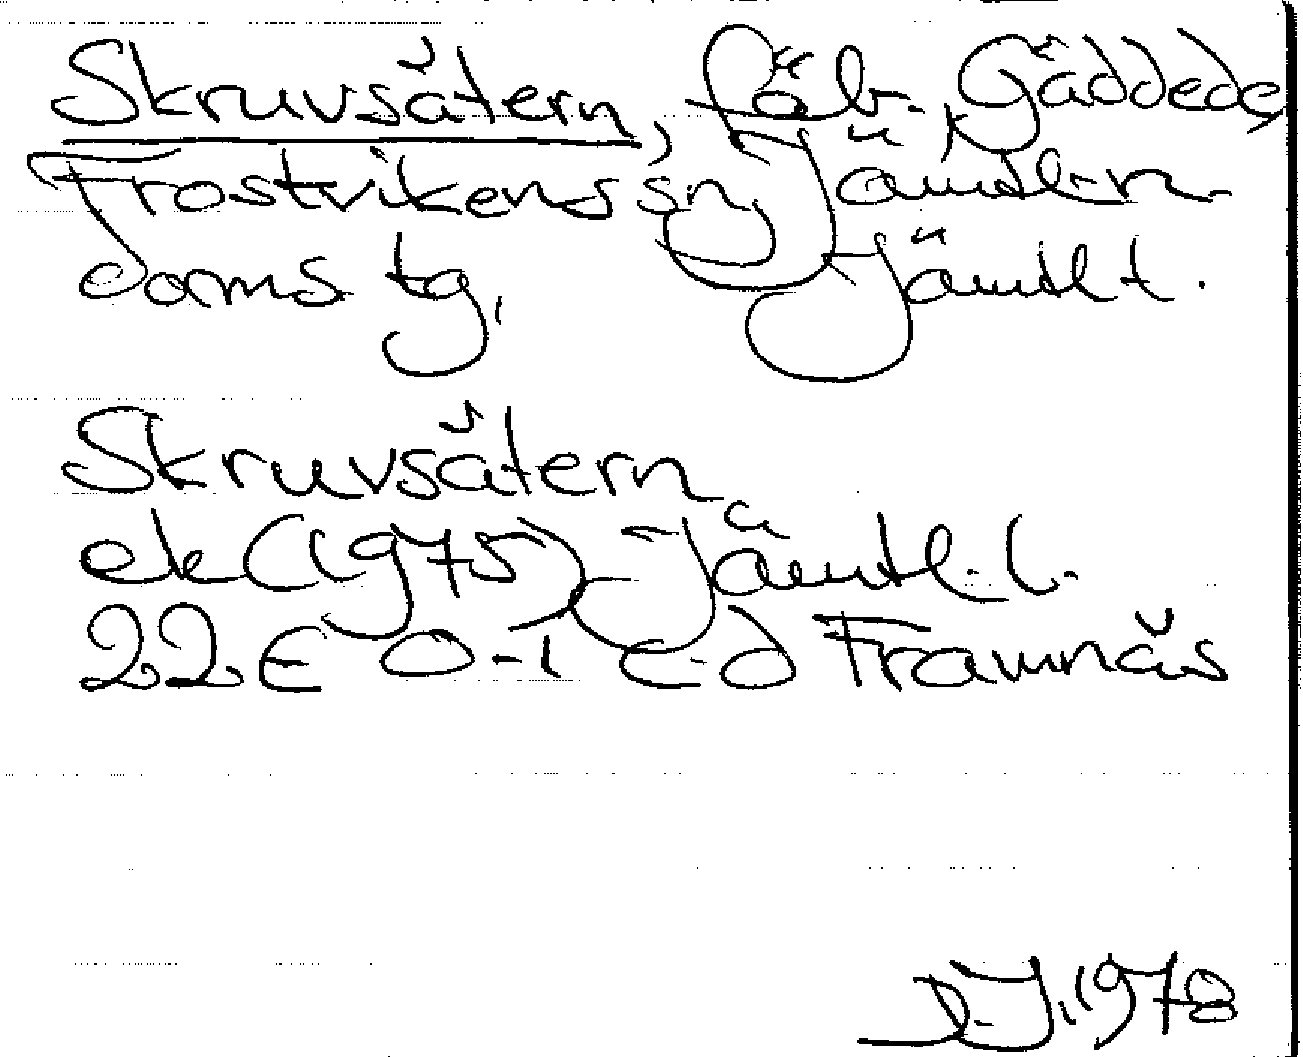 Skruvsätern, fäb. Gäddede,
Frostvikens sn, Jämtl. n.
doms tg, Jämtl t.
Skruvsätern
ek (1975) Jämtl. l.
22 E 0-1 c-d Framnäs
1978